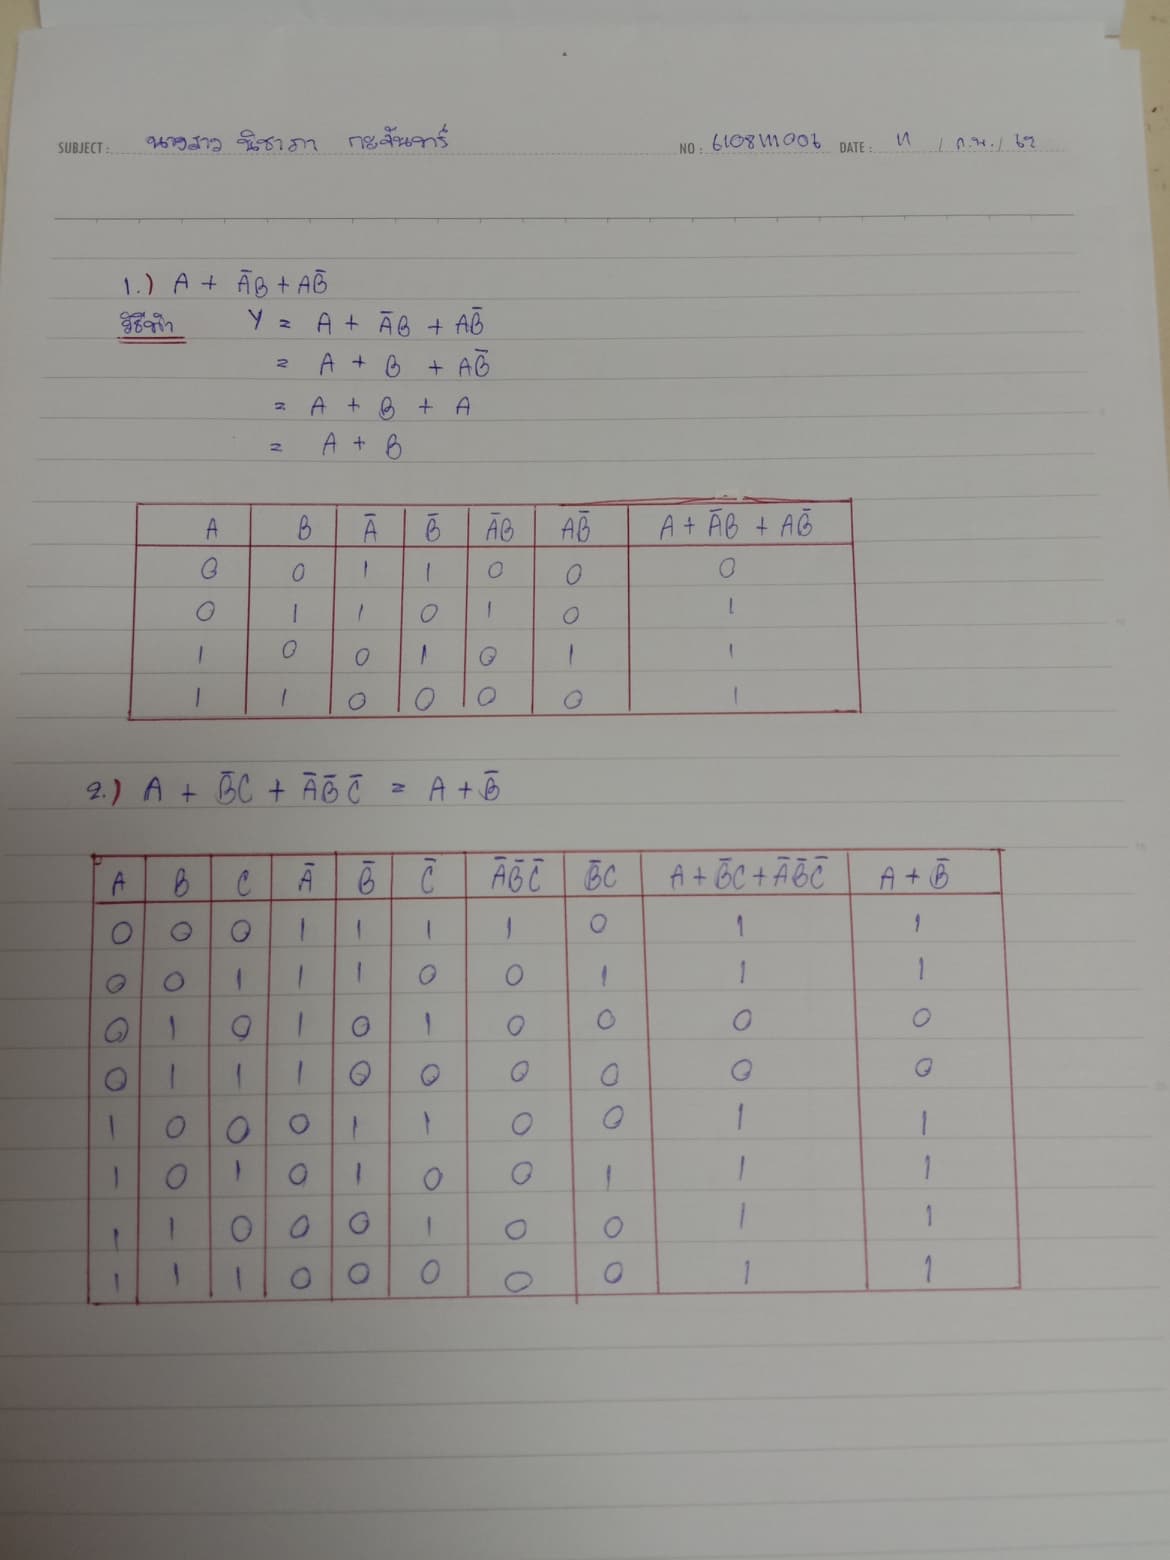 SUBJECT: นางสาว นิชาภา กะจันทร์ NO: 6108111006 DATE: / ก.พ. / 62
1.) A + A̅B + AB̅
วิธีทำ Y = A + A̅B + AB̅
= A + B + AB̅
= A + B + A
= A + B
A B A̅ B̅ A̅B AB̅ A + A̅B + AB̅
0 0 1 1 0 0 0
0 1 1 0 1 0 1
1 0 0 1 0 1 1
1 1 0 0 0 0 1
2.) A + B̅C + A̅B̅C̅ = A + B̅
A B C A̅ B̅ C̅ A̅B̅C̅ B̅C A + B̅C + A̅B̅C̅ A + B̅
0 0 0 1 1 1 1 0 1 1
0 0 1 1 1 0 0 1 1 1
0 1 0 1 0 1 0 0 0 0
0 1 1 1 0 0 0 0 0 0
1 0 0 0 1 1 0 0 1 1
1 0 1 0 1 0 0 1 1 1
1 1 0 0 0 1 0 0 1 1
1 1 1 0 0 0 0 0 1 1